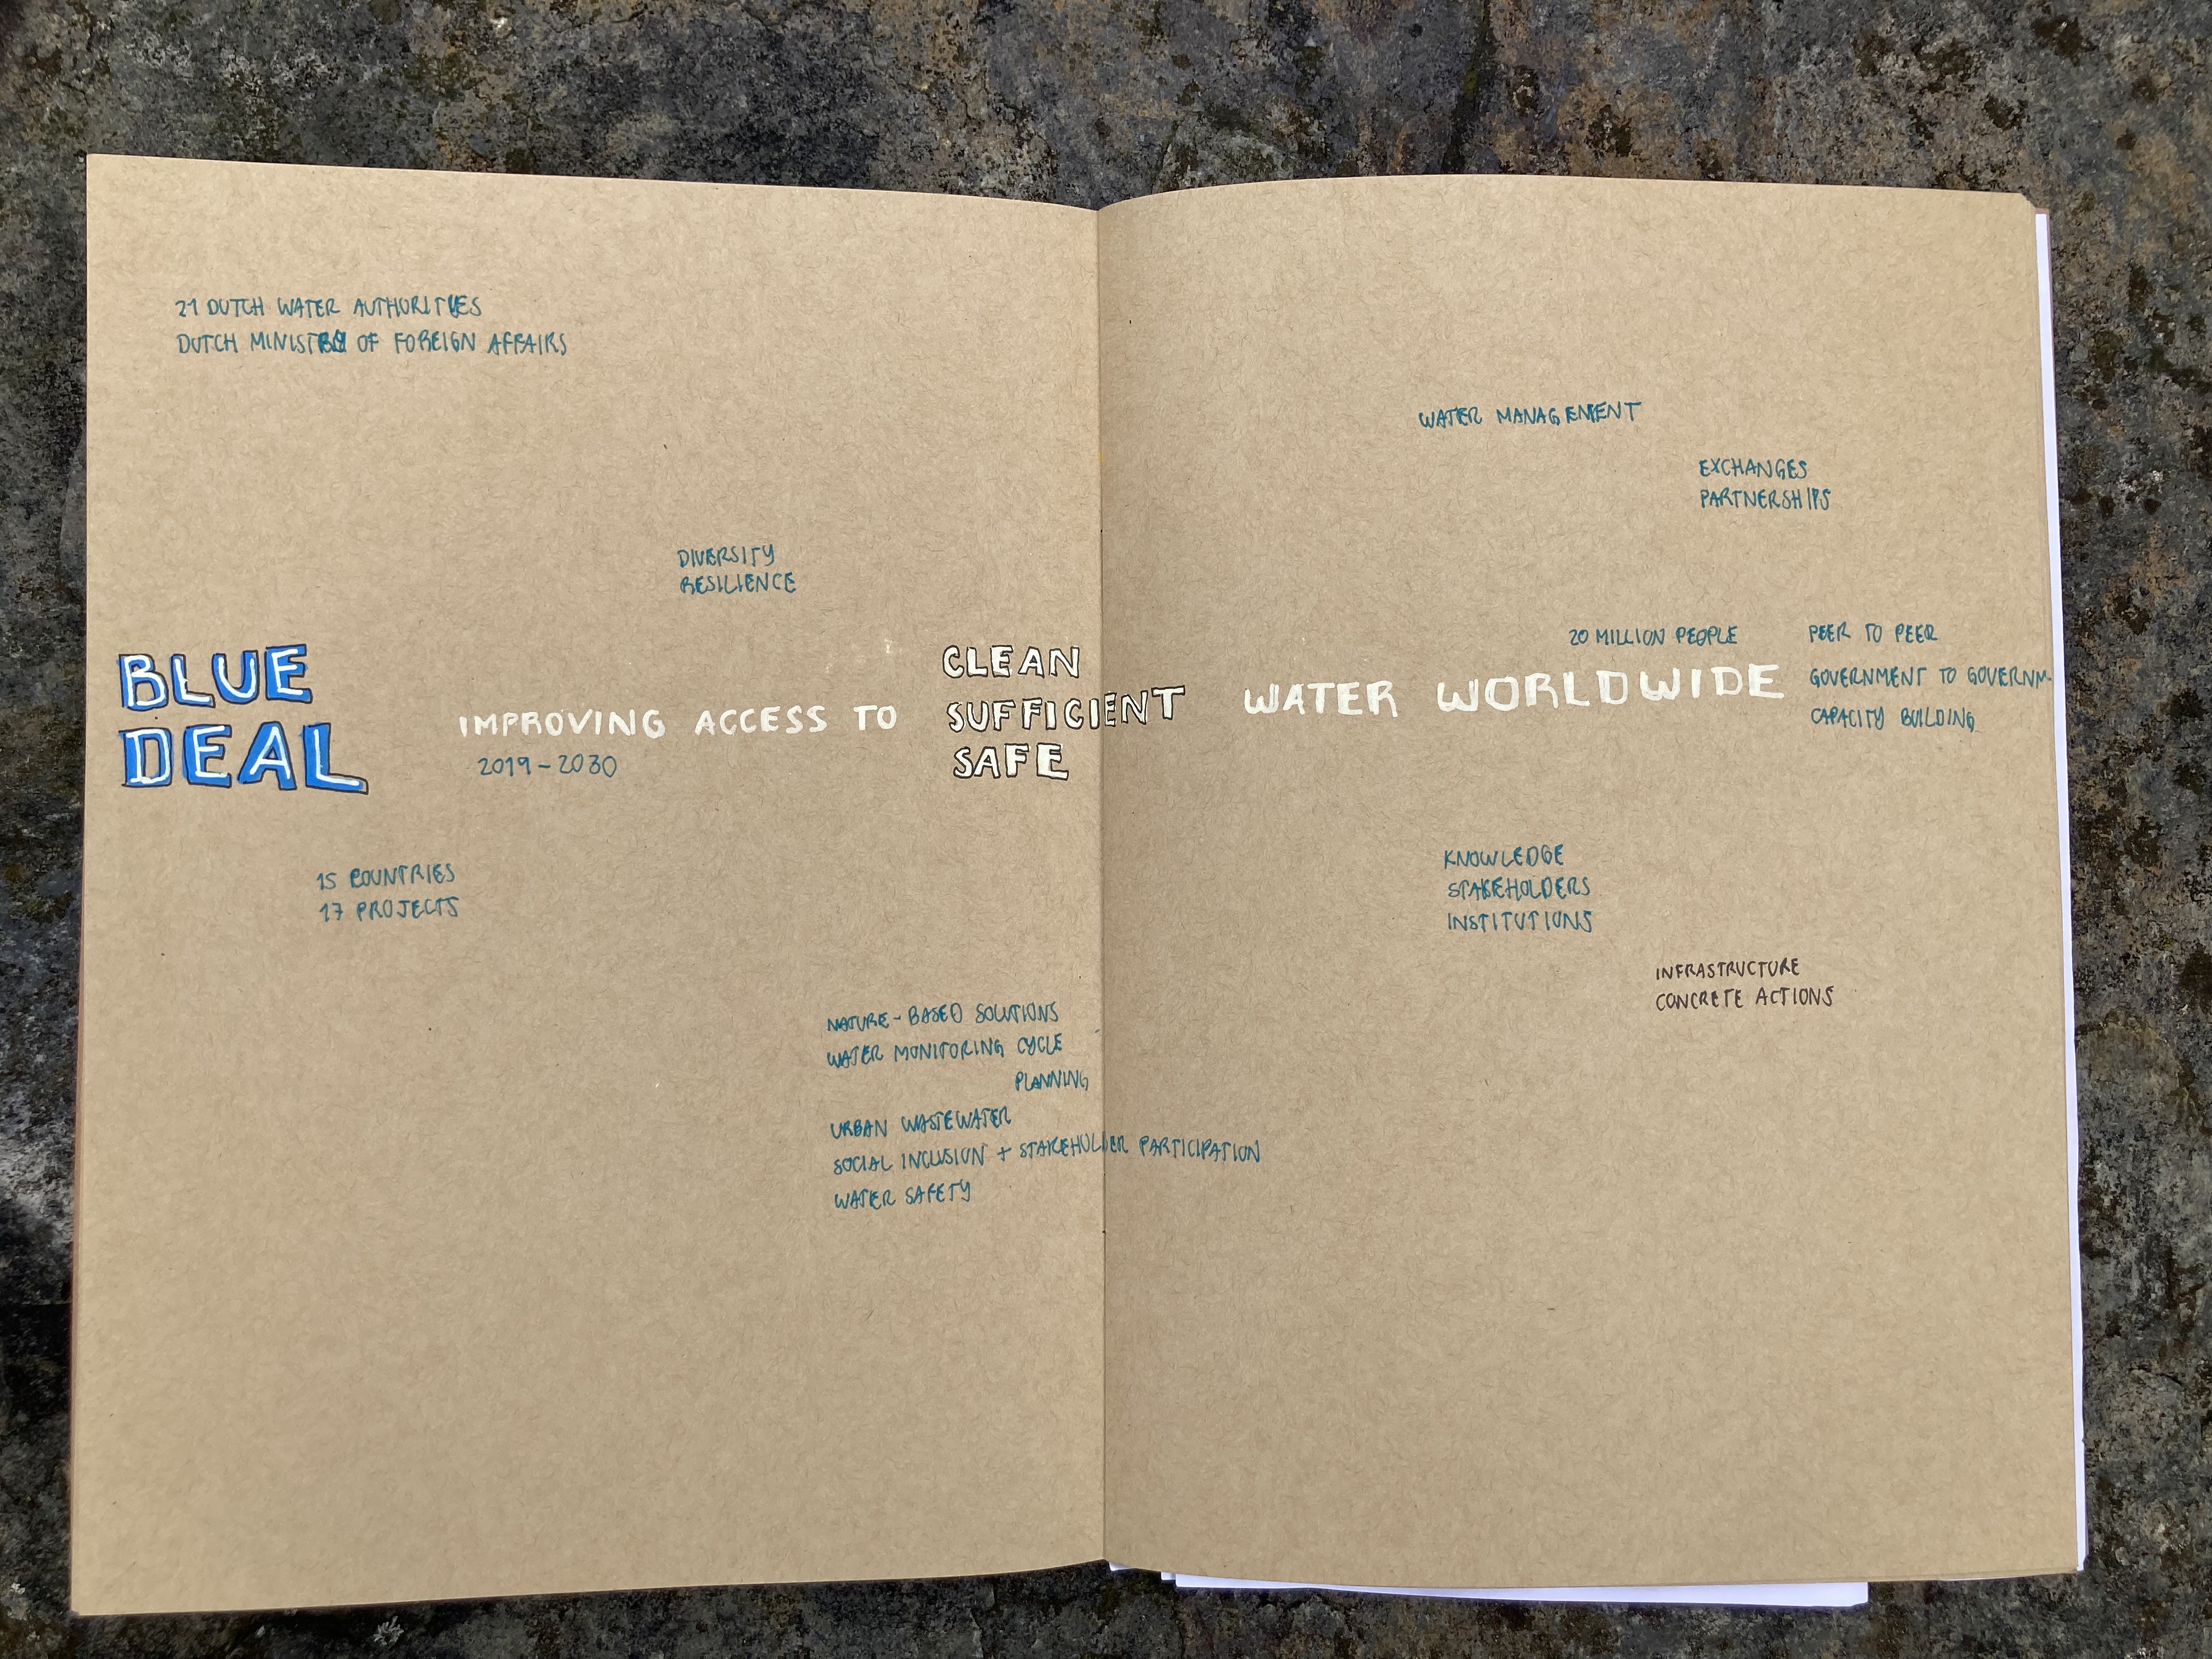 21 DUTCH WATER AUTHORITIES
DUTCH MINISTRY OF FOREIGN AFFAIRS
DIVERSITY
RESILIENCE
BLUE
DEAL
IMPROVING ACCESS TO
2019-2030
CLEAN
SUFFICIENT
SAFE
WATER WORLDWIDE
15 COUNTRIES
17 PROJECTS
NATURE-BASED SOLUTIONS
WATER MONITORING CYCLE
PLANNING
URBAN WASTEWATER
SOCIAL INCLUSION + STAKEHOLDER PARTICIPATION
WATER SAFETY
WATER MANAGEMENT
EXCHANGES
PARTNERSHIPS
20 MILLION PEOPLE
PEER TO PEER
GOVERNMENT TO GOVERNM.
CAPACITY BUILDING
KNOWLEDGE
STAKEHOLDERS
INSTITUTIONS
INFRASTRUCTURE
CONCRETE ACTIONS